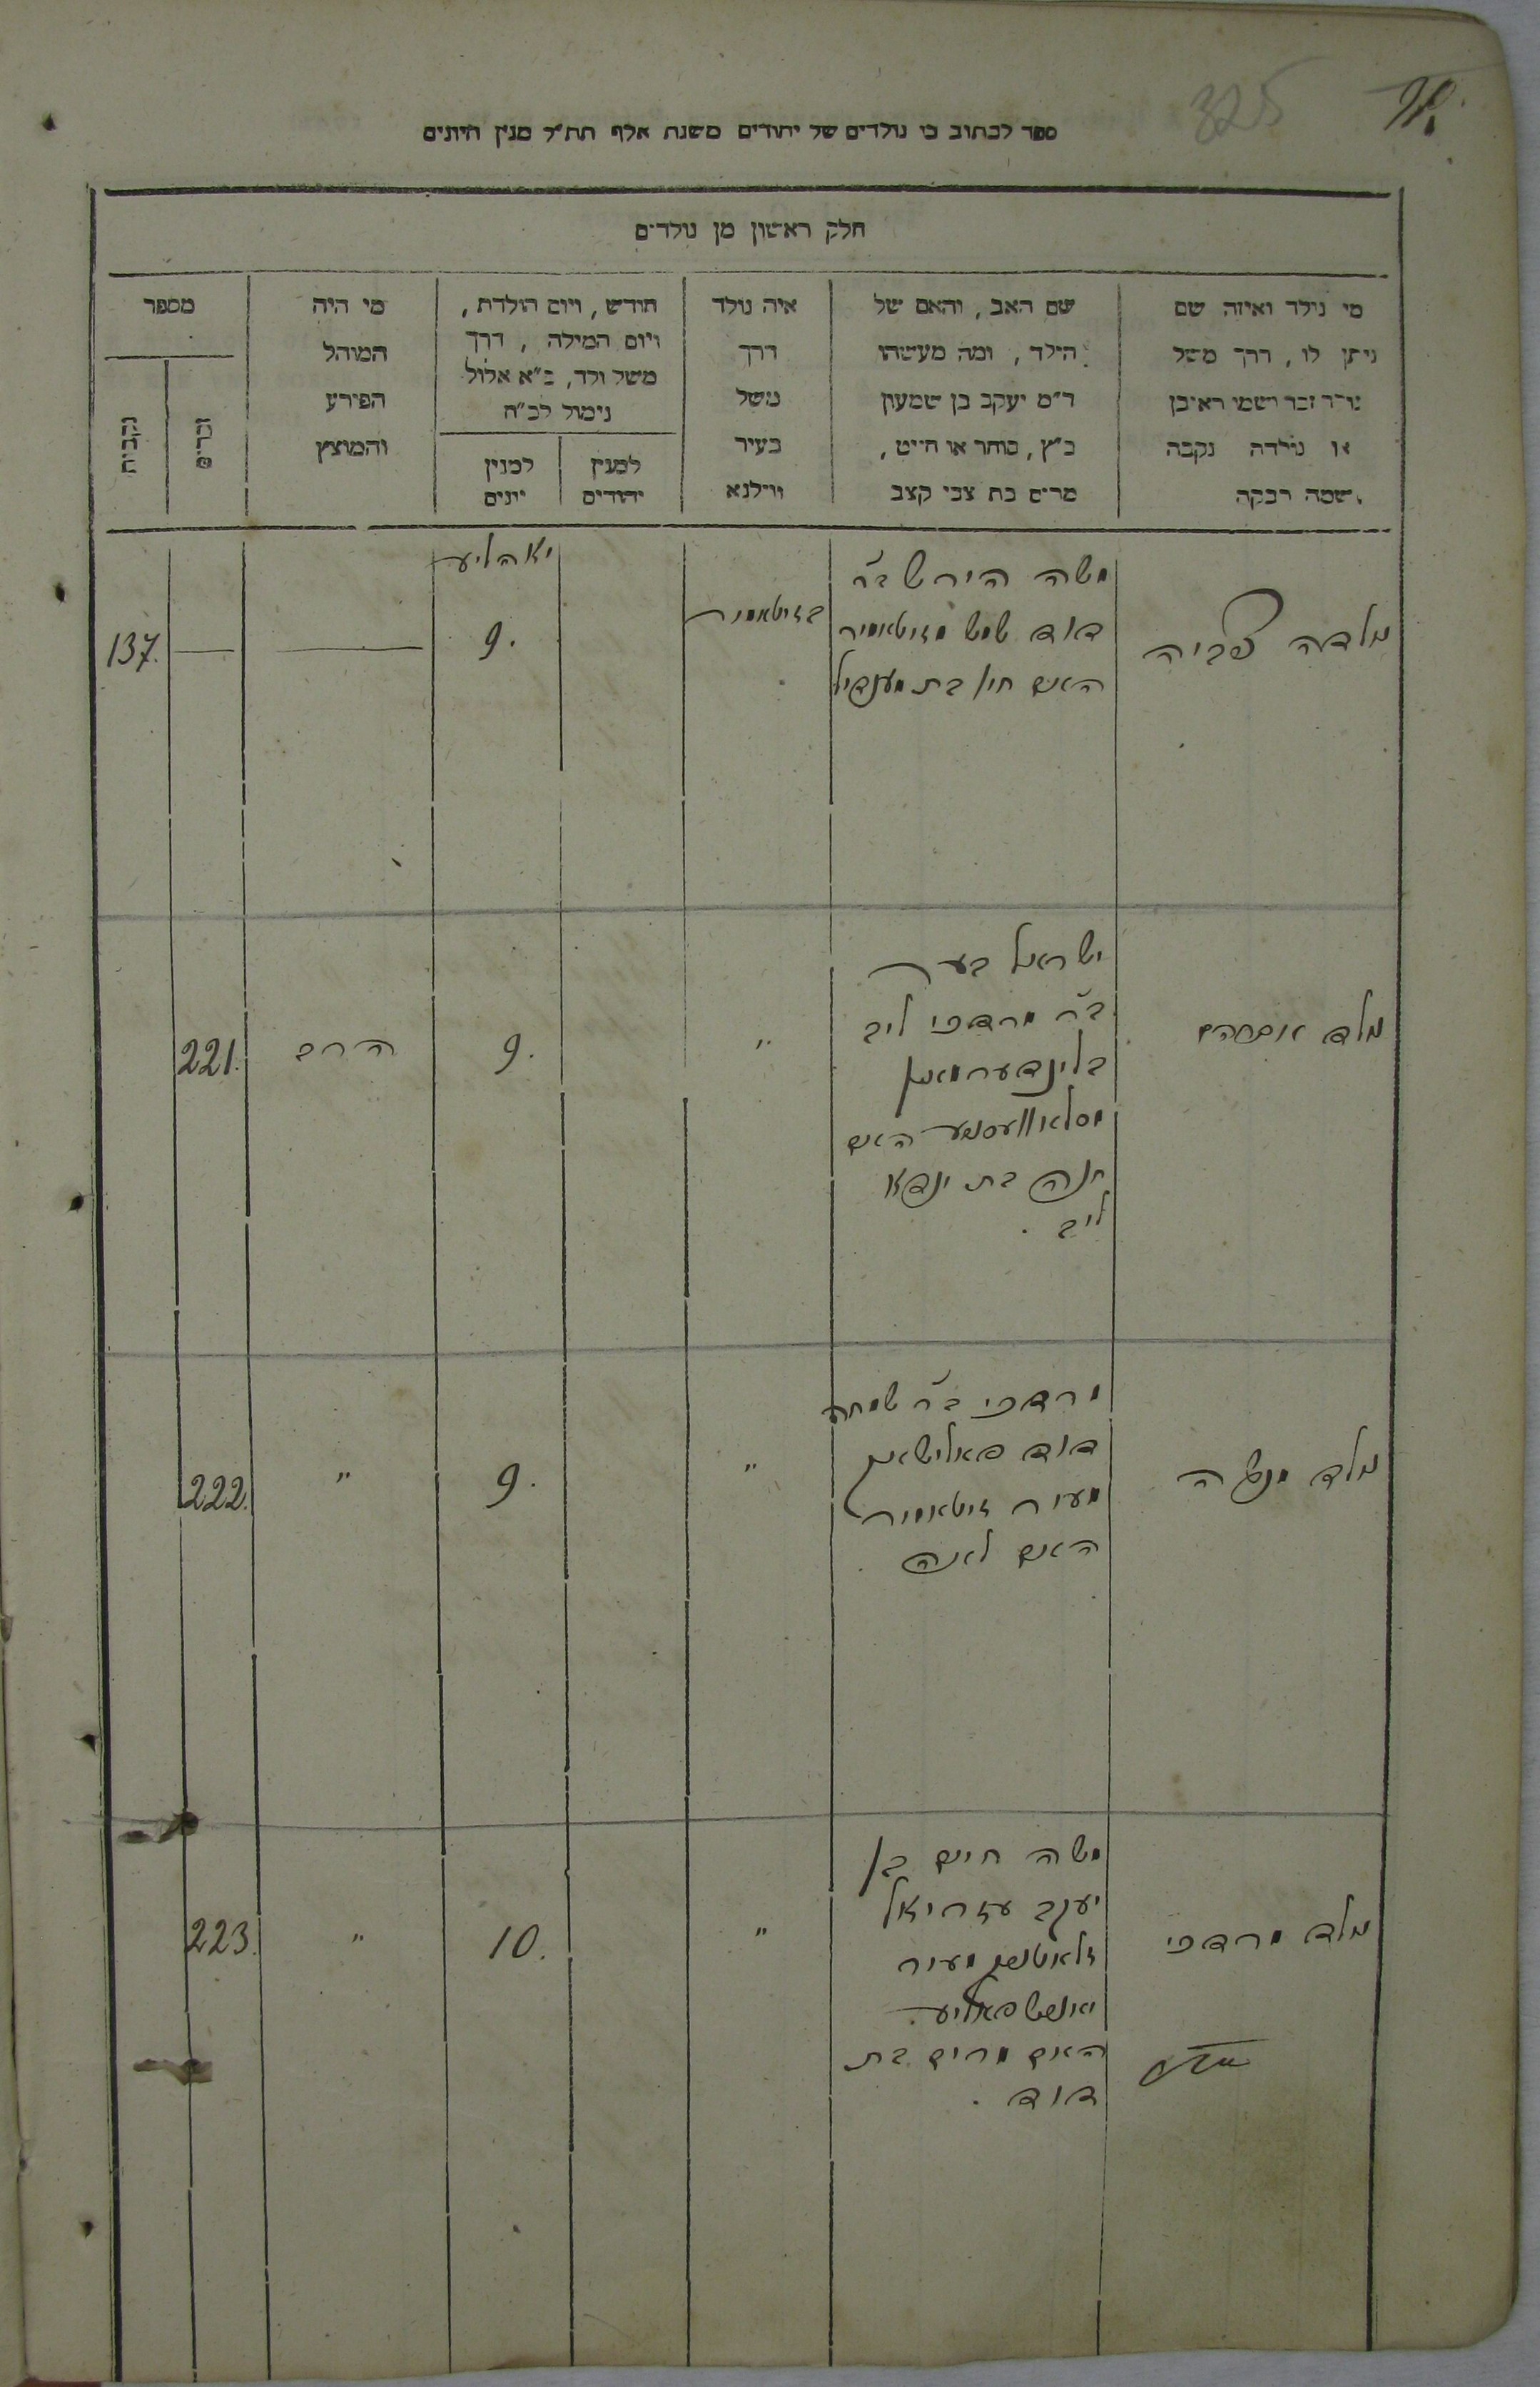 325
ספר לכתוב בו נולדים של יהודים משנת אלף תת״ל מנין היונים
חלק ראשון מן נולדים
מי נולד ואיזה שם
ניתן לו, דרך משל
נולד זכר ושמו ראובן
או נולדה נקבה
ושמה רבקה
שם האב, והאם של
הילד, ומה מעשהו
ד״מ יעקב בן שמעון
כ״ץ, סוחר או חייט,
מרים בת צבי קצב
איה נולד
דרך
משל
בעיר
ווילנא
חודש, ויום הולדת,
ויום המילה, דרך
משל ולד, כ״א אלול
נימול לכ״ח
למנין
יהודים
למנין
יונים
מי היה
המוהל
הפורע
והמוצץ
מספר
זכרים
נקבות
נולדה צביה
משה הירש ב״ר
דוד שמש מזיטאמיר
האם חיו בת מענדיל
בזיטאמיר
יאהליע
9.
—
—
137.
נולד אברהם
ישראל בער
ב״ר מרדכי ליב
בלינדערמאן
האם
חנה בת
ליב.
״
9.
הרב
221.
נולד מנשה
מרדכי ב״ר שמחה
דוד
מעיר זיטאמיר
האם לאה
״
9.
״
222.
נולד מרדכי
משה חיים בן
יעקב עזריאל
מעיר
האם מרים בת
דוד.
״
10.
״
223.